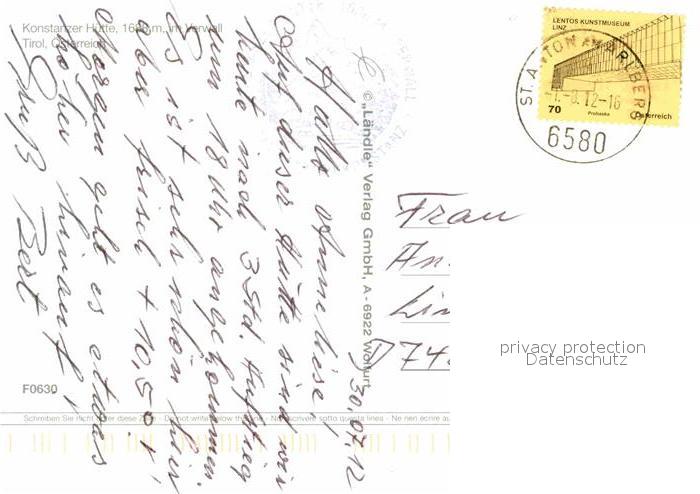 Konstanzer Hütte, 1688 m, im Verwall
Tirol, Österreich
30.07.12
Hallo Annneliese!
Auf dieser Hütte sind wir
heute nach 3 Std. Aufstieg
um 18 Uhr angekommen.
Es ist sehr schön hier
aber frisch + 10,5° !
Morgen geht es etwas
höher hinauf!
Gruß Bert
© „Ländle" Verlag GmbH, A - 6922 Wolfurt
F0630
Schreiben Sie nicht unter diese Zeile - Do not write below the - Non scrivere sotto questa linea - Ne rien écrire au
LENTOS KUNSTMUSEUM
LINZ
70
Österreich
ST. ANTON AM ARLBERG
-1.-8.12-16
6580
Frau
An
Lin
D 74
privacy protection
Datenschutz